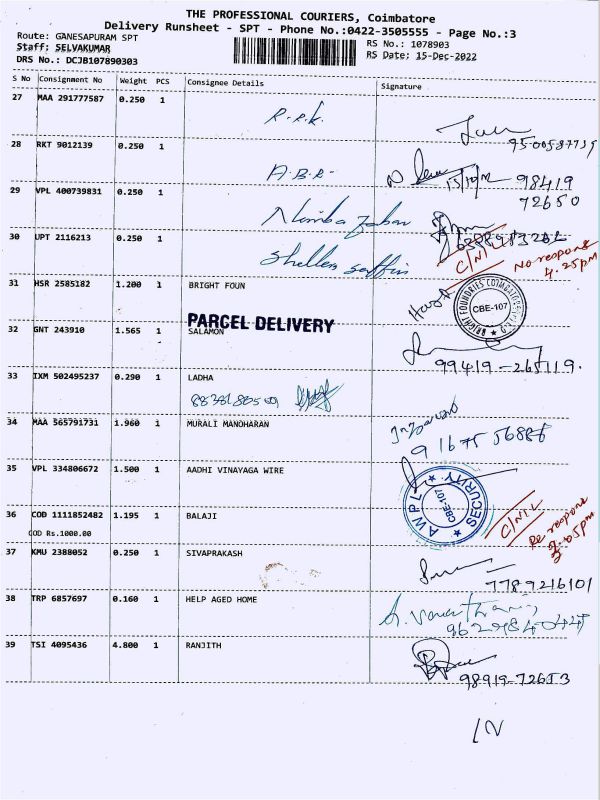 THE PROFESSIONAL COURIERS, Coimbatore
Delivery Runsheet - SPT - Phone No.:0422-3505555 - Page No.:3
Route: GANESAPURAM SPT
Staff: SELVAKUMAR
DRS No.: DCJB107890303
RS No.: 1078903
RS Date: 15-Dec-2022
S No Consignment No Weight PCS Consignee Details Signature
27 MAA 291777587 0.250 1
R.R.K.
28 RKT 9012139 0.250 1
A.B.R-
98419
72650
29 VPL 400739831 0.250 1
30 UPT 2116213 0.250 1
C/NIL
No respons
4.25pm
31 HSR 2585182 1.200 1 BRIGHT FOUN
BRIGHT FOUNDRIES COIMBATORE
CBE-107
PARCEL DELIVERY
32 GNT 243910 1.565 1 SALAMON
99419-265119.
33 IXM 502495237 0.290 1 LADHA
34 MAA 565791731 1.960 1 MURALI MANOHARAN
9 1675 56886
35 VPL 334806672 1.500 1 AADHI VINAYAGA WIRE
AWPL
SECURITY
CBE-107
36 COD 1111852482 1.195 1 BALAJI
COD Rs.1000.00
C/NIL
37 KMU 2388052 0.250 1 SIVAPRAKASH
7789216101
38 TRP 6857697 0.160 1 HELP AGED HOME
39 TSI 4095436 4.800 1 RANJITH
98919-72653